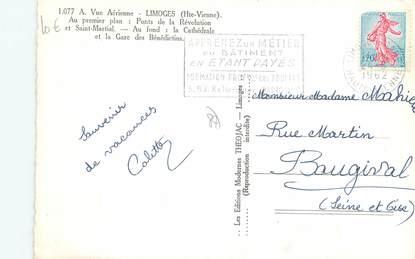 10€
1.077 A. Vue Aérienne - LIMOGES (Hte-Vienne).
Au premier plan : Ponts de la Révolution
et Saint-Martial. — Au fond : la Cathédrale
et la Gare des Bénédictins.
APPRENEZ UN MÉTIER
DU BATIMENT
EN ETANT PAYÉS
1962
0,20
Souvenir
de vacances
Colette
Les Editions Modernes THEOJAC — Limoges
(Reproduction interdite)
Monsieur Madame Mahieu
Rue Martin
Bougival
(Seine et Oise)